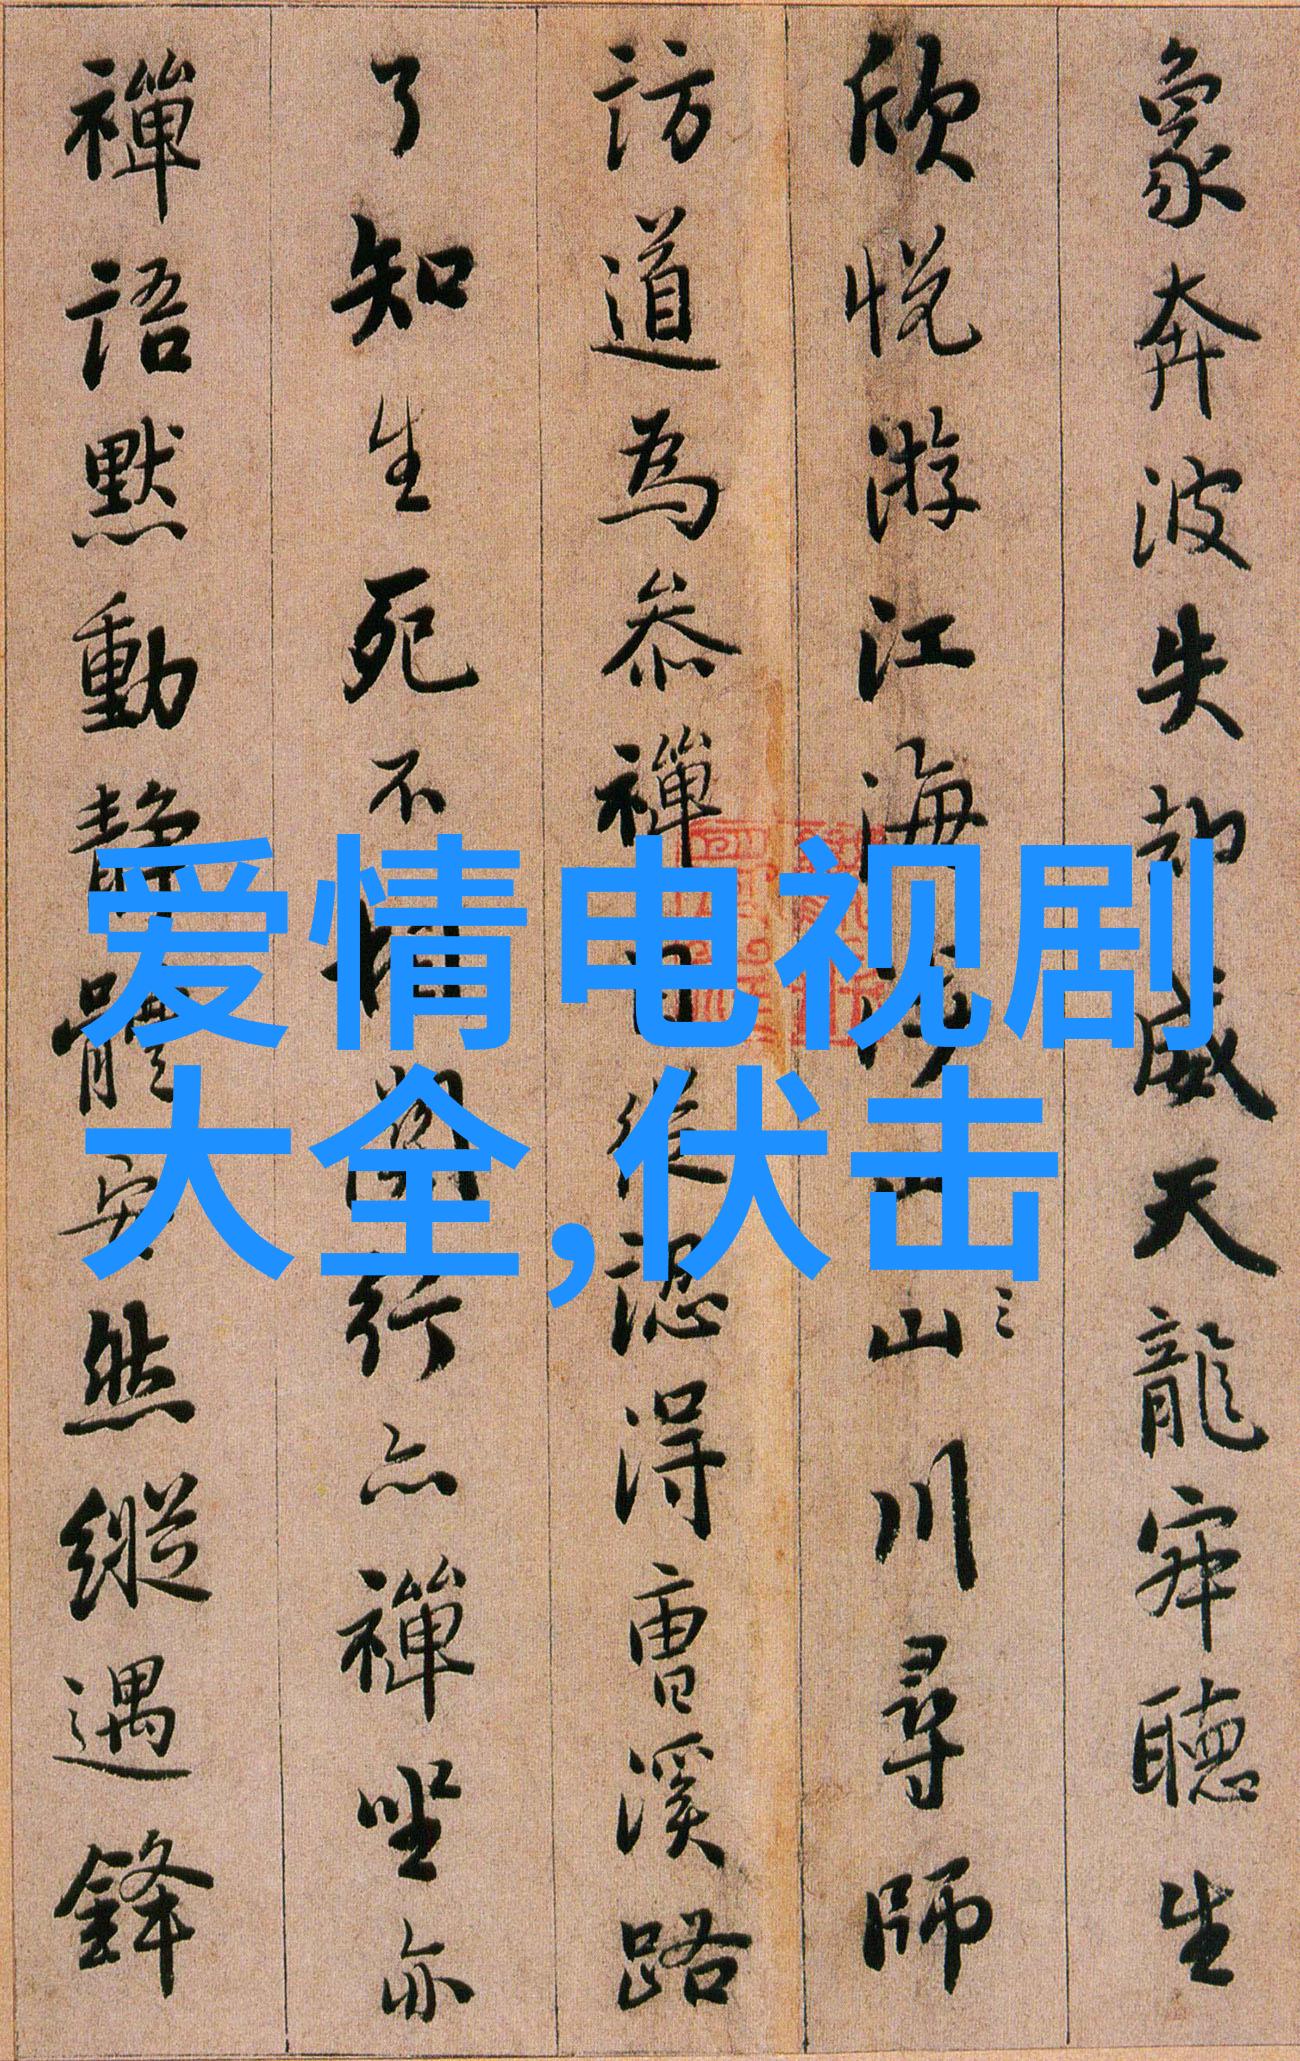 象奔波失却威天龍寂聽生
欣悅游江海涉山川尋師
訪道為参禪自從認得曹溪路
了知生死不相關行亦禪坐亦
禪語默動靜體安然縱遇鋒
爱情电视剧
大全,伏击